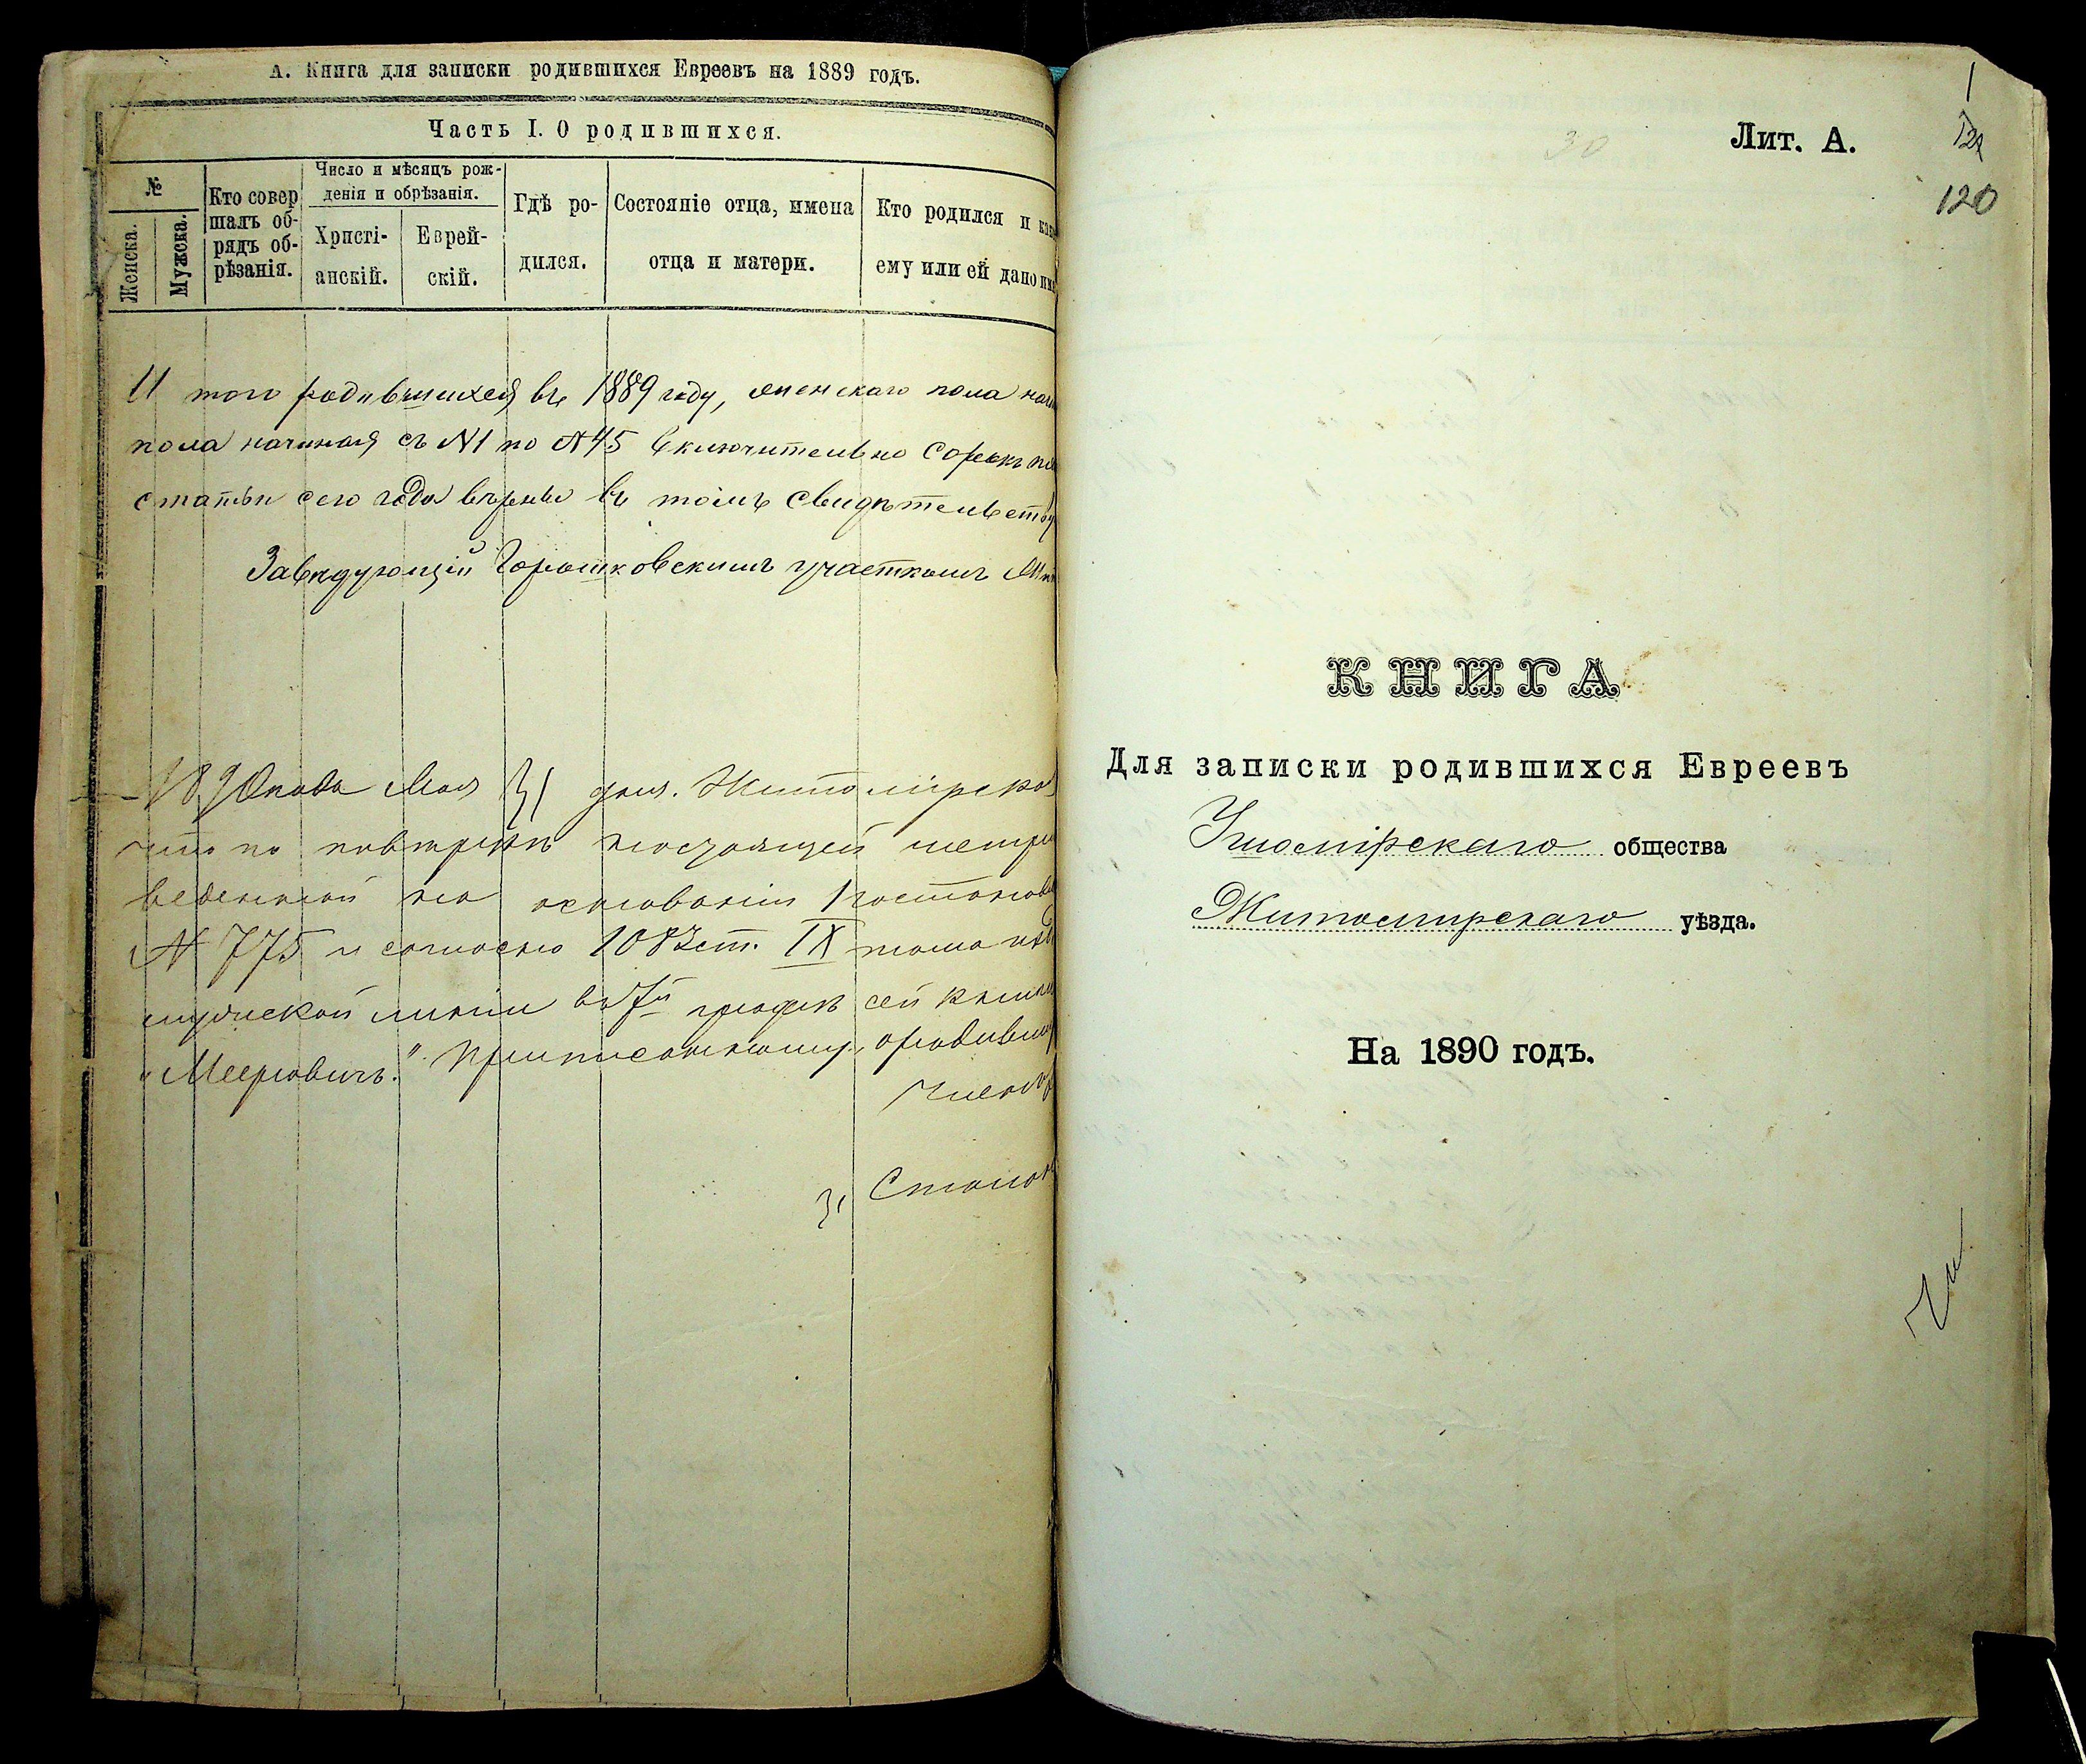 А. Книга для записки родившихся Евреевъ на 1889 годъ.
Часть I. О родившихся.
№
Женска.
Мужска.
Кто совер
шалъ об-
рядъ об-
рѣзанія.
Число и мѣсяцъ рож-
денія и обрѣзанія.
Христі-
анскій.
Еврей-
скій.
Гдѣ ро-
дился.
Состояніе отца, имена
отца и матери.
Кто родился и как
ему или ей дано им
Итого родившихся въ 1889 году, женскаго пола
пола начиная съ №1 по №45 включительно сорокъ
статьи сего года вѣрны въ томъ свидѣтельств
Завѣдующій Горошковскимъ участкомъ
189 года Мая 31 дня. Житомірско
что по повѣркѣ настоящей метри
веденной на основаніи постановл
№ 775 и согласно 1083 ст. IX тома
мужской линіи въ 7й графѣ сей книги
"Мееровичъ." приписанному, о родивш
Член
Лит. А.
120
30
КНИГА
Для записки родившихся Евреевъ
Ушомірскаго общества
Житомирскаго уѣзда.
На 1890 годъ.